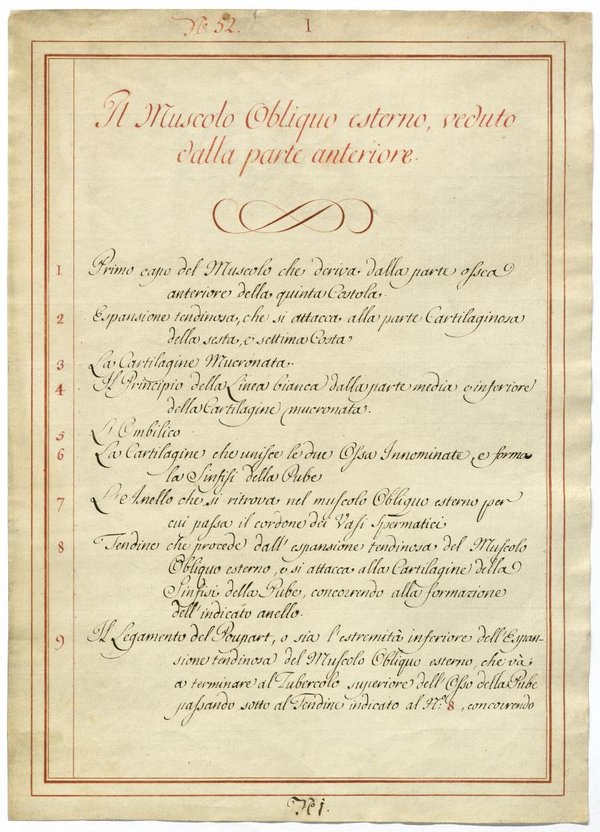 N.º 52.
I
Il Muscolo Obliquo esterno, veduto
dalla parte anteriore.
1 Primo capo del Muscolo che deriva dalla parte ossea
anteriore della quinta Costola.
2 Espansione tendinosa, che si attacca alla parte Cartilaginosa
della sesta, e settima Costa
3 La Cartilagine Mucronata.
4 Il Principio della Linea bianca dalla parte media e inferiore
della Cartilagine mucronata.
5 L'Ombilico
6 La Cartilagine che unisce le due Ossa Innominate, e forma
la Sinfisi della Pube
7 L'Anello che si ritrova nel muscolo Obliquo esterno per
cui passa il cordone dei Vasi Spermatici
8 Tendine che procede dall'espansione tendinosa del Muscolo
Obliquo esterno, e si attacca alla Cartilagine della
Sinfisi della Pube, concorrendo alla formazione
dell'indicato anello.
9 Il Legamento del Poupart, o sia l'estremità inferiore dell'Espan-
sione tendinosa del Muscolo Obliquo esterno, che và
a terminare al Tubercolo superiore dell'Osso della Pube
passando sotto al Tendine indicato al N.º 8, concorrendo
N.º 1.